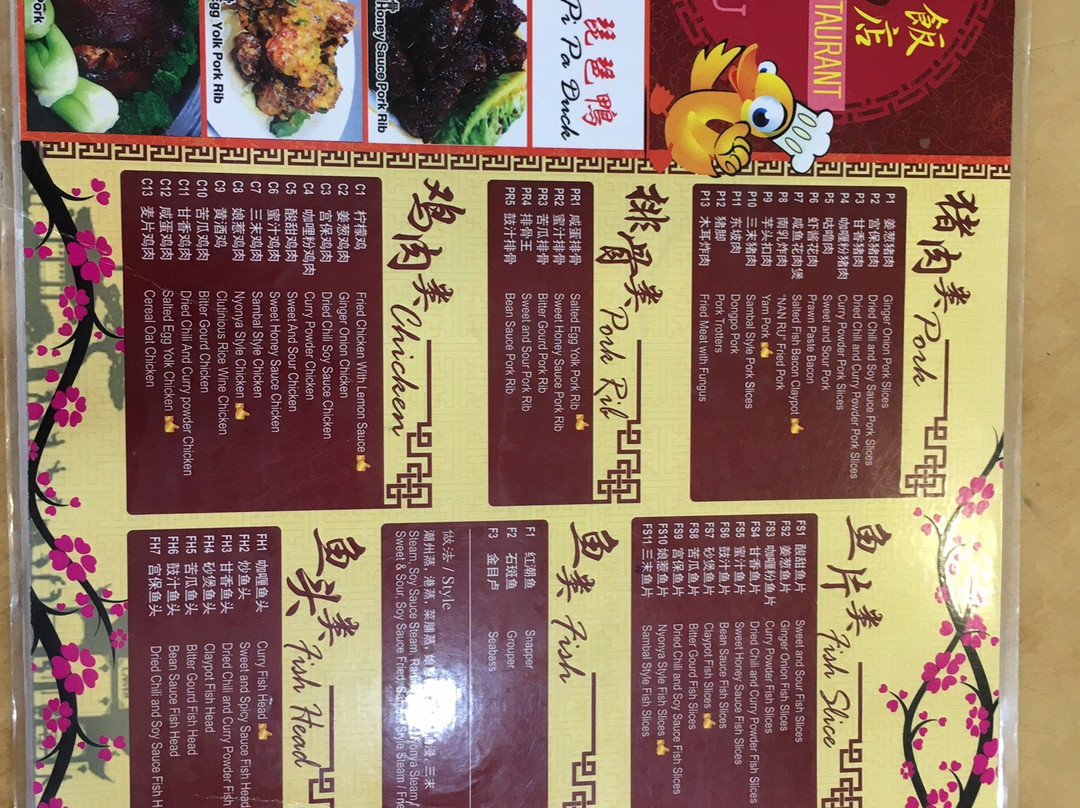 飯店
U
TAURANT
琵琶鴨
Pi Pa Duck
Honey Sauce Pork Rib
Egg Yolk Pork Rib
Pork
猪肉类 Pork
P1 姜葱猪肉 Ginger Onion Pork Slices
P2 宫保猪肉 Dried Chili and Soy Sauce Pork Slices
P3 甘香猪肉 Dried Chili and Curry Powder Pork Slices
P4 咖喱粉猪肉 Curry Powder Pork Slices
P5 咕噜肉 Sweet and Sour Pork
P6 虾酱花肉 Prawn Paste Bacon
P7 咸鱼花肉煲 Salted Fish Bacon Claypot
P8 南乳炸肉 "NAN RU" Fried Pork
P9 芋头扣肉 Yam Pork
P10 三末猪肉 Sambal Style Pork Slices
P11 东坡肉 Dongpo Pork
P12 猪脚 Pork Trotters
P13 木耳炸肉 Fried Meat with Fungus
排骨类 Pork Rib
PR1 咸蛋排骨 Salted Egg Yolk Pork Rib
PR2 蜜汁排骨 Sweet Honey Sauce Pork Rib
PR3 苦瓜排骨 Bitter Gourd Pork Rib
PR4 排骨王 Sweet and Sour Pork Rib
PR5 鼓汁排骨 Bean Sauce Pork Rib
鸡肉类 Chicken
C1 柠檬鸡 Fried Chicken With Lemon Sauce
C2 姜葱鸡肉 Ginger Onion Chicken
C3 宫保鸡肉 Dried Chili Soy Sauce Chicken
C4 咖喱粉鸡肉 Curry Powder Chicken
C5 酸甜鸡肉 Sweet And Sour Chicken
C6 蜜汁鸡肉 Sweet Honey Sauce Chicken
C7 三末鸡肉 Sambal Style Chicken
C8 娘惹鸡肉 Nyonya Style Chicken
C9 黄酒鸡 Glutinous Rice Wine Chicken
C10 苦瓜鸡肉 Bitter Gourd Chicken
C11 甘香鸡肉 Dried Chili And Curry powder Chicken
C12 咸蛋鸡肉 Salted Egg Yolk Chicken
C13 麦片鸡肉 Cereal Oat Chicken
鱼片类 Fish Slice
FS1 酸甜鱼片 Sweet and Sour Fish Slices
FS2 姜葱鱼片 Ginger Onion Fish Slices
FS3 咖喱粉鱼片 Curry Powder Fish Slices
FS4 甘香鱼片 Dried Chili and Curry Powder Fish Slices
FS5 蜜汁鱼片 Sweet Honey Sauce Fish Slices
FS6 鼓汁鱼片 Bean Sauce Fish Slices
FS7 砂煲鱼片 Claypot Fish Slices
FS8 苦瓜鱼片 Bitter Gourd Fish Slices
FS9 宫保鱼片 Dried Chili and Soy Sauce Fish Slices
FS10 娘惹鱼片 Nyonya Style Fish Slices
FS11 三末鱼片 Sambal Style Fish Slices
鱼类 Fish
F1 红潮鱼 Snapper
F2 石斑鱼 Grouper
F3 金目卢 Seabass
做法 / Style
潮州蒸, 港蒸, 菜脯蒸, 三末
Steam, Soy Sauce Steam, Nyonya Steam/
Sweet & Sour, Soy Sauce Fried, Style Steam / Frie
鱼头类 Fish Head
FH1 咖喱鱼头 Curry Fish Head
FH2 炒鱼头 Sweet and Spicy Sauce Fish Head
FH3 甘香鱼头 Dried Chili and Curry Powder Fish
FH4 砂煲鱼头 Claypot Fish Head
FH5 苦瓜鱼头 Bitter Gourd Fish Head
FH6 鼓汁鱼头 Bean Sauce Fish Head
FH7 宫保鱼头 Dried Chili and Soy Sauce Fish H